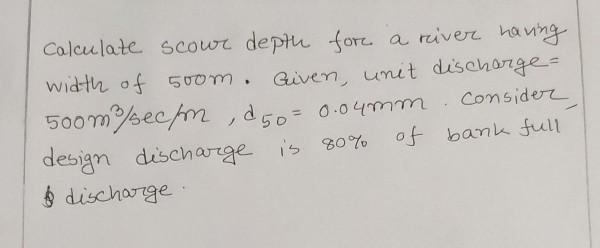 Calculate scour depth for a river having
width of 500m. Given, unit discharge=
500m³/sec/m, d50= 0.04mm. Consider,
design discharge is 80% of bank full
discharge.